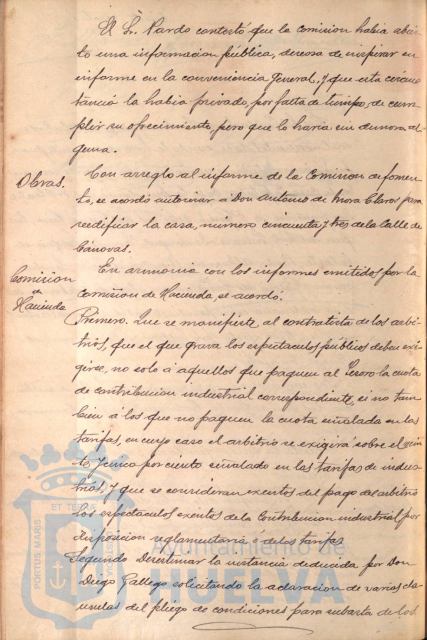 El Sr. Pardo contestó que la comision habia abier-
to una informacion pública, deseosa de inspirar su
informe en la conveniencia general, y que esta circuns-
tancia la habia privado, por falta de tiempo, de cum-
plir su ofrecimiento, pero que lo haria sin demora al-
guna.
Obras.
Con arreglo al informe de la Comision de fomen-
to, se acordó autorizar á Don Antonio de Mora Claros para
reedificar la casa, número cincuenta y tres de la Calle de
Cánovas.
Comision
de
Hacienda
En armonia con los informes emitidos por la
Comision de Hacienda, se acordó.
Primero. Que se manifieste al contratista de los arbi-
trios, que el que grava los espectaculos públicos deben exi-
girse, no solo á aquellos que paguen al Tesoro la cuota
de contribucion industrial correspondiente, si no tam-
bien á los que no paguen la cuota señalada en las
tarifas, en cuyo caso el arbitrio se exigirá sobre el
to y cinco por ciento señalado en las tarifas de indus-
trias, y que se consideran exentos del pago de arbitrio
los espectaculos exentos de la Contribucion industrial por
disposicion reglamentaria ó de las tarifas.
Segundo Desestimar la instancia deducida por Don
Diego Gallego solicitando la aclaracion de varias clau-
sulas del pliego de condiciones para subasta de los
PORTUS MARIS
ET TERRAE
Ayuntamiento de
HUELVA